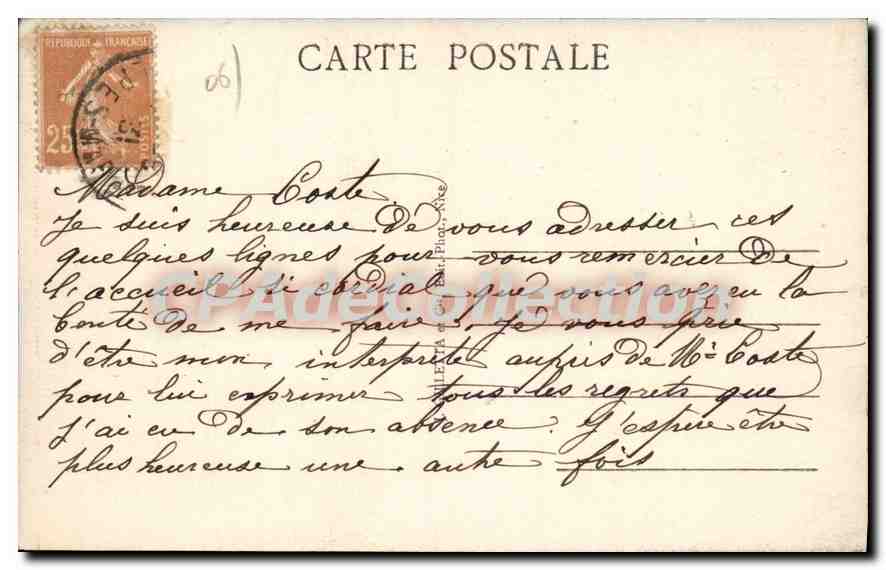 RÉPUBLIQUE FRANÇAISE
25
POSTES
CARTE POSTALE
06)
Madame Coste
Je suis heureuse de vous adresser ces
quelques lignes pour vous remercier de
l'accueil si cordial que vous avez eu la
bonté de me faire. Je vous prie
d'être mon interprète auprès de Mr Coste
pour lui exprimer tous les regrets que
j'ai eu de son absence. J'espère être
plus heureuse une autre fois
GILLETTA et Cie, Edit.-Phot., Nice
CPAdeCollection